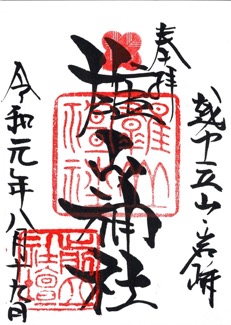 奉拝
越中立山・岩峅
雄山神社
雄山神社
令和元年八月十九日